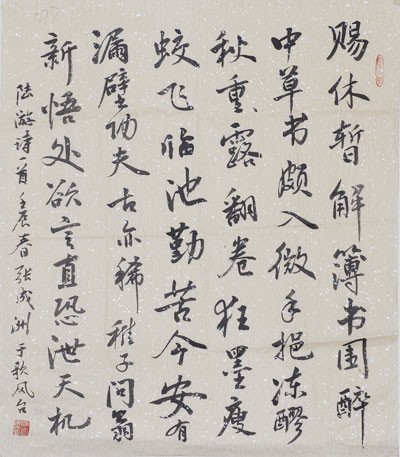 赐休暂解簿书围醉
中草书颇入微手挹冻醪
秋重露翻卷狂墨瘦
蛟飞临池勤苦今安有
漏壁功夫古亦稀稚子问翁
新悟处欲言直恐泄天机
陆游诗一首壬辰春张成洲于歌风台